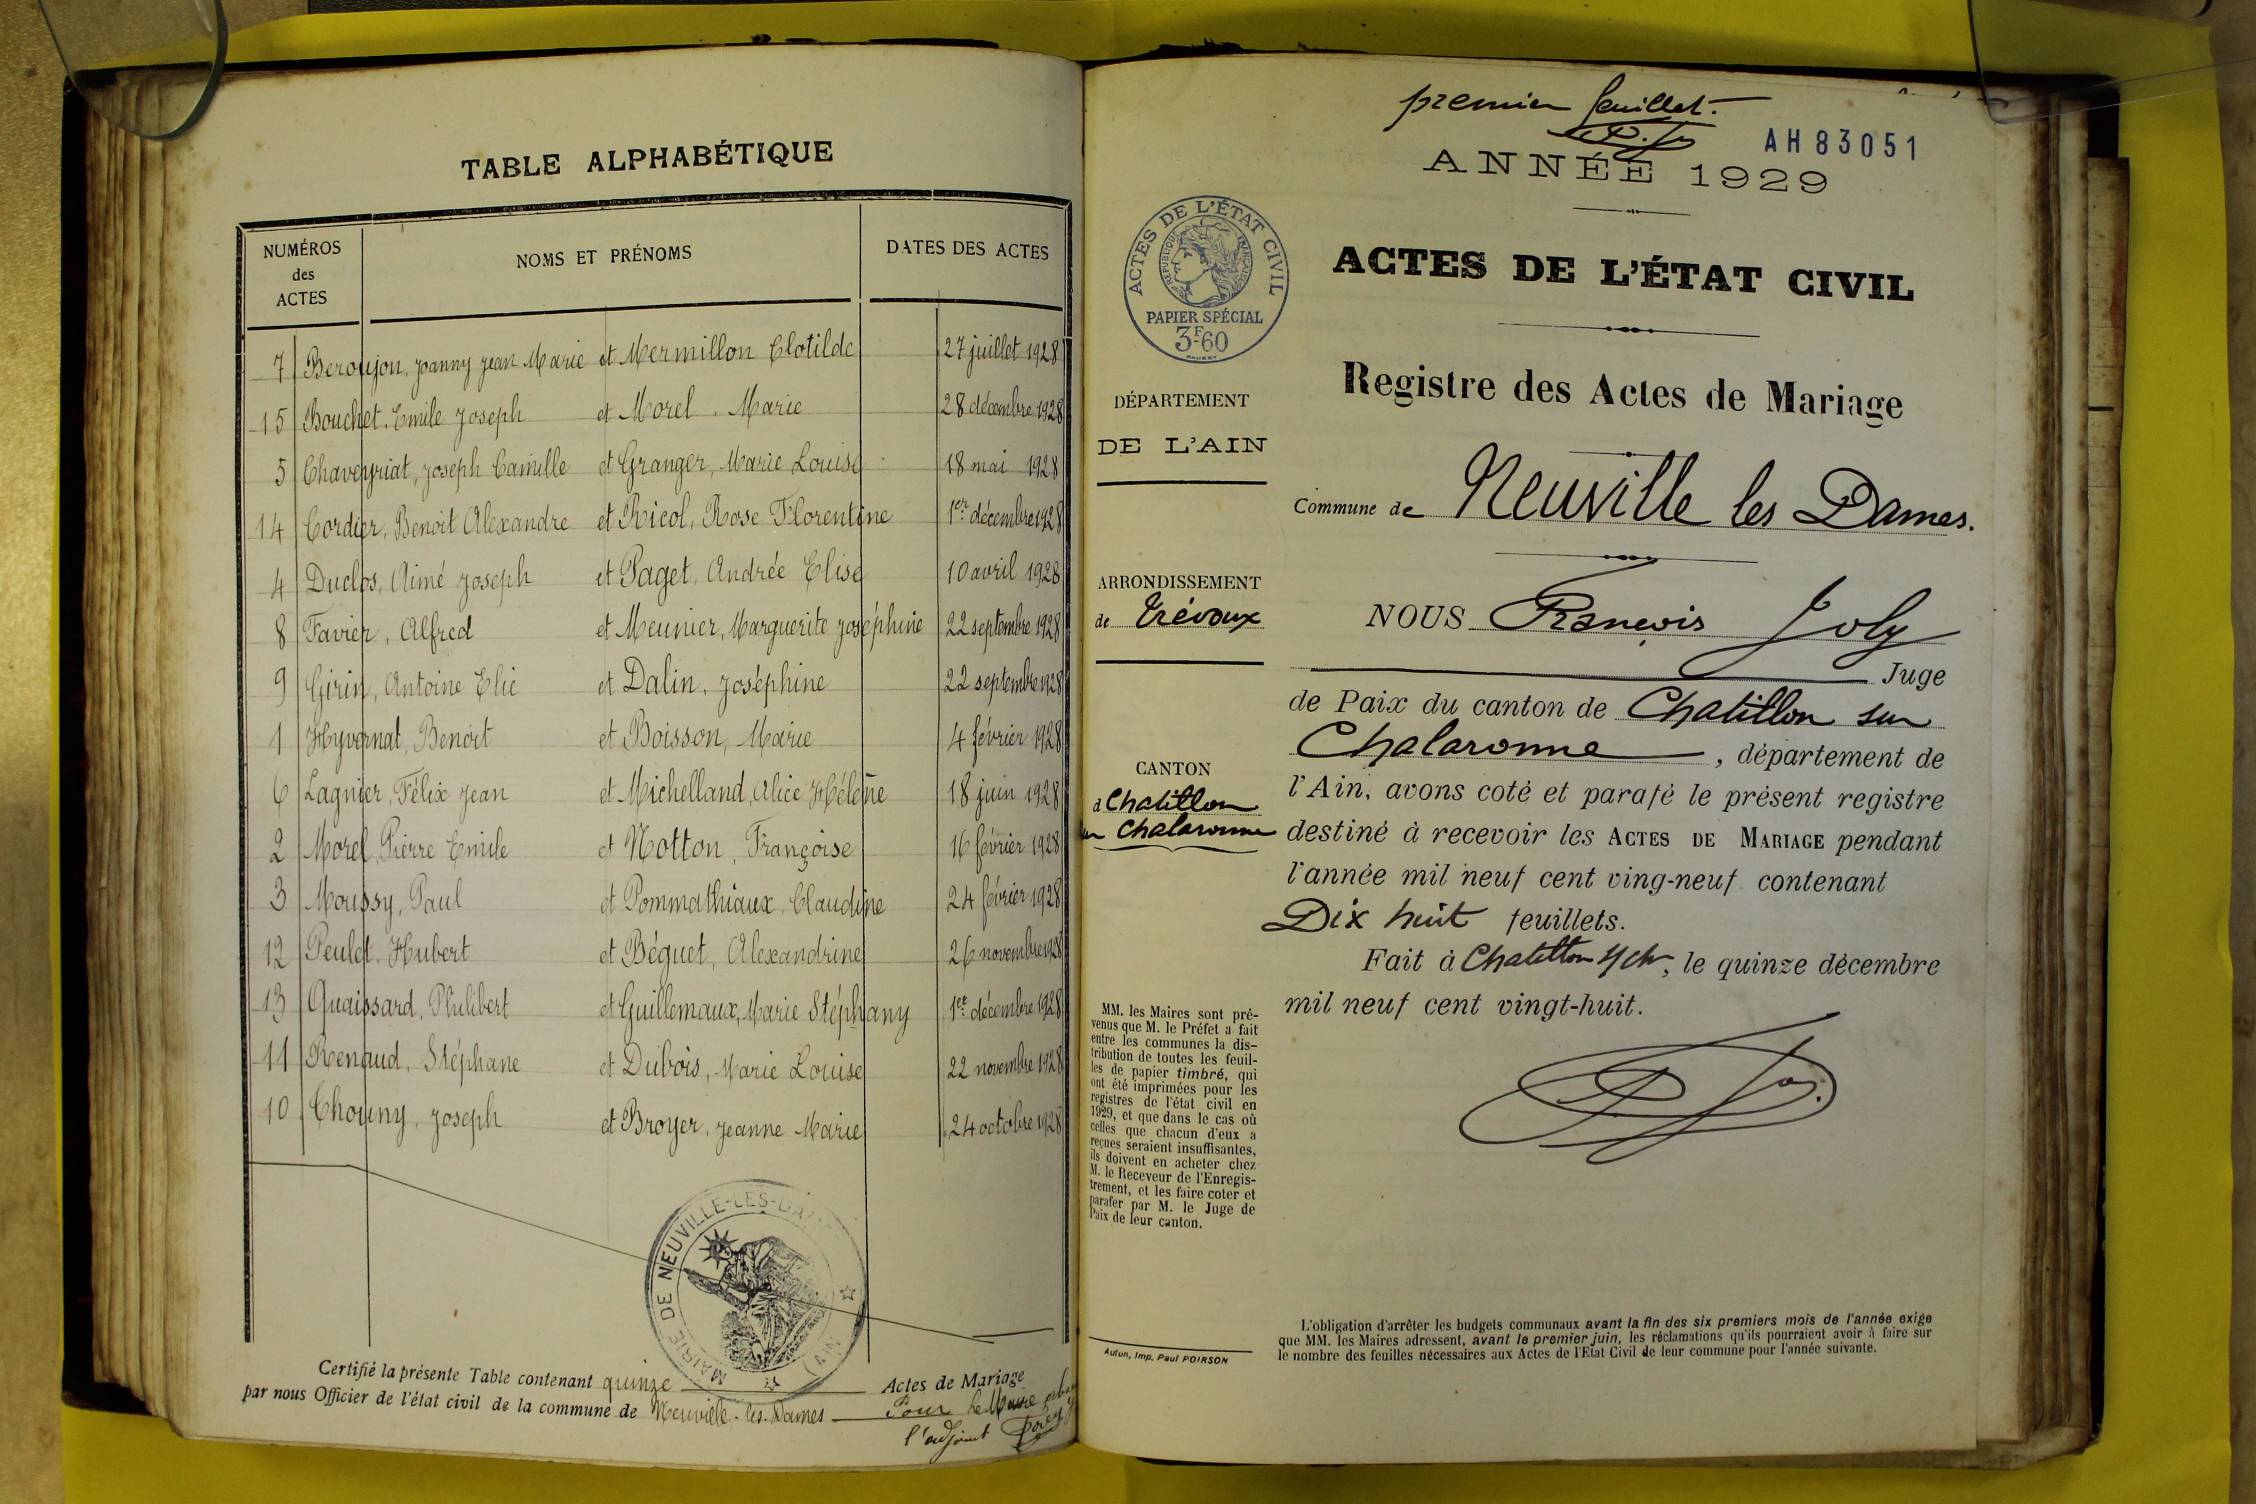 TABLE ALPHABÉTIQUE
NUMÉROS des ACTES NOMS ET PRÉNOMS DATES DES ACTES
7 Beroujon, Joanny Jean Marie et Mermillon Clotilde 27 juillet 1928
15 Bouchet, Emile Joseph et Morel, Marie 28 décembre 1928
5 Chaveyriat, Joseph Camille et Granger, Marie Louise 18 mai 1928
14 Cordier, Benoit Alexandre et Ricol, Rose Florentine 1er décembre 1928
4 Duclos, Aimé Joseph et Paget, Andrée Elise 10 avril 1928
8 Favier, Alfred et Meunier, Marguerite Joséphine 22 septembre 1928
9 Girin, Antoine Elie et Dalin, Joséphine 22 septembre 1928
1 Hyvernat, Benoit et Boisson, Marie 4 février 1928
6 Lagnier, Félix Jean et Michelland, Alice Hélène 18 juin 1928
2 Morel, Pierre Emile et Notton, Françoise 16 février 1928
3 Moussy, Paul et Pommathiaux, Claudine 24 février 1928
12 Peulet, Hubert et Béguet, Alexandrine 26 novembre 1928
13 Quaissard, Philibert et Guillemaux, Marie Stéphany 1er décembre 1928
11 Renaud, Stéphane et Dubois, Marie Louise 22 novembre 1928
10 Chouny, Joseph et Broyer, Jeanne Marie 24 octobre 1928
MAIRIE DE NEUVILLE-LES-DAMES
(AIN)
Certifié la présente Table contenant quinze Actes de Mariage
par nous Officier de l'état civil de la commune de Neuville-les-Dames
Pour le Maire
l'adjoint
premier feuillet.
AH83051
ANNÉE 1929
ACTES DE L'ÉTAT CIVIL
RÉPUBLIQUE FRANÇAISE
PAPIER SPÉCIAL
3F60
ACTES DE L'ÉTAT CIVIL
Registre des Actes de Mariage
DÉPARTEMENT
DE L'AIN
Commune de Neuville les Dames.
ARRONDISSEMENT
de Trévoux
CANTON
d Chatillon
sur Chalaronne
NOUS François Joly
Juge
de Paix du canton de Chatillon sur
Chalaronne, département de
l'Ain, avons coté et parafé le présent registre
destiné à recevoir les ACTES DE MARIAGE pendant
l'année mil neuf cent ving-neuf contenant
Dix huit feuillets.
Fait à Chatillon s/ch, le quinze décembre
mil neuf cent vingt-huit.
MM. les Maires sont pré-
venus que M. le Préfet a fait
entre les communes la dis-
tribution de toutes les feuil-
les de papier timbré, qui
ont été imprimées pour les
registres de l'état civil en
1929, et que dans le cas où
celles que chacun d'eux a
reçues seraient insuffisantes,
ils doivent en acheter chez
M. le Receveur de l'Enregis-
trement, et les faire coter et
parafer par M. le Juge de
Paix de leur canton.
Autun, Imp. Paul POIRSON
L'obligation d'arrêter les budgets communaux avant la fin des six premiers mois de l'année exige
que MM. les Maires adressent, avant le premier juin, les réclamations qu'ils pourraient avoir à faire sur
le nombre des feuilles nécessaires aux Actes de l'Etat Civil de leur commune pour l'année suivante.